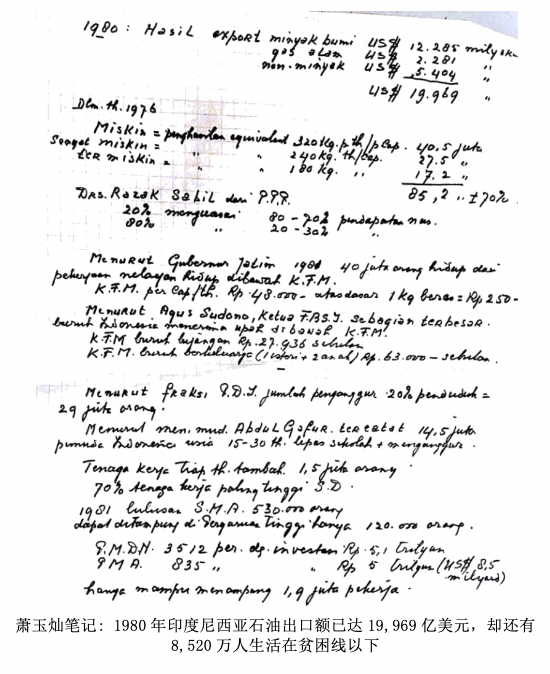 1980 : Hasil export minyak bumi US$ 12.285 milyar
gas alam US$ 2.281 "
non-minyak US$ 5.404 "
US$ 19.969 "
Dlm. th. 1976
Miskin = penghasilan equivalent 320 kg. p. th/p Cap. 40,5 juta
Sangat miskin = " " 240 kg. th/cap. 27.5 "
ter miskin = " " 180 kg. " 17.2 "
85,2 " ± 70%
Drs. Razak Sahil dari P.P.P.
20% menguasai 80 - 70% pendapatan nas.
80% " 20 - 30% "
Menurut Gubernur Jatim 1981 40 juta orang hidup dari
pekerjaan nelayan hidup dibawah K.F.M.
K.F.M. per Cap/th. Rp. 48.000 - atas dasar 1 kg beras = Rp 250-
Menurut Agus Sudono, Ketua F.B.S.I. sebagian terbesar
buruh Indonesia menerima upah dibawah K.F.M.
K.F.M buruh bujangan Rp. 27.936 sebulan
K.F.M. buruh berkeluarga (1 istri + 2 anak) Rp. 63.000 - sebulan.
Menurut fraksi P.D.I. jumlah penganggur 20% penduduk =
29 juta orang.
Menurut men. mud. Abdul Gafur. tercatat 14,5 juta
pemuda Indonesia usia 15-30 th. lepas sekolah + menganggur.
Tenaga kerja tiap th. tambah 1,5 juta orang.
70% tenaga kerja paling tinggi S.D.
1981 lulusan S.M.A. 530.000 orang
dapat ditampung di Perguruan Tinggi hanya 120.000 orang.
P.M.D.N. 3512 per. dg. investasi Rp. 5,1 trilyun
P M A. 835 " " Rp 5 trilyun (US$ 8,5
milyard)
hanya mampu menampung 1,9 juta pekerja.
萧玉灿笔记: 1980 年印度尼西亚石油出口额已达 19,969 亿美元，却还有
8,520 万人生活在贫困线以下